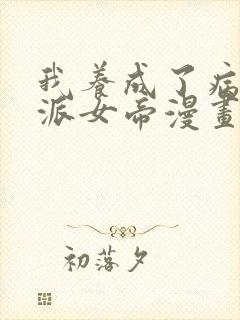 我养成了病
派女帝漫畫
初落夕